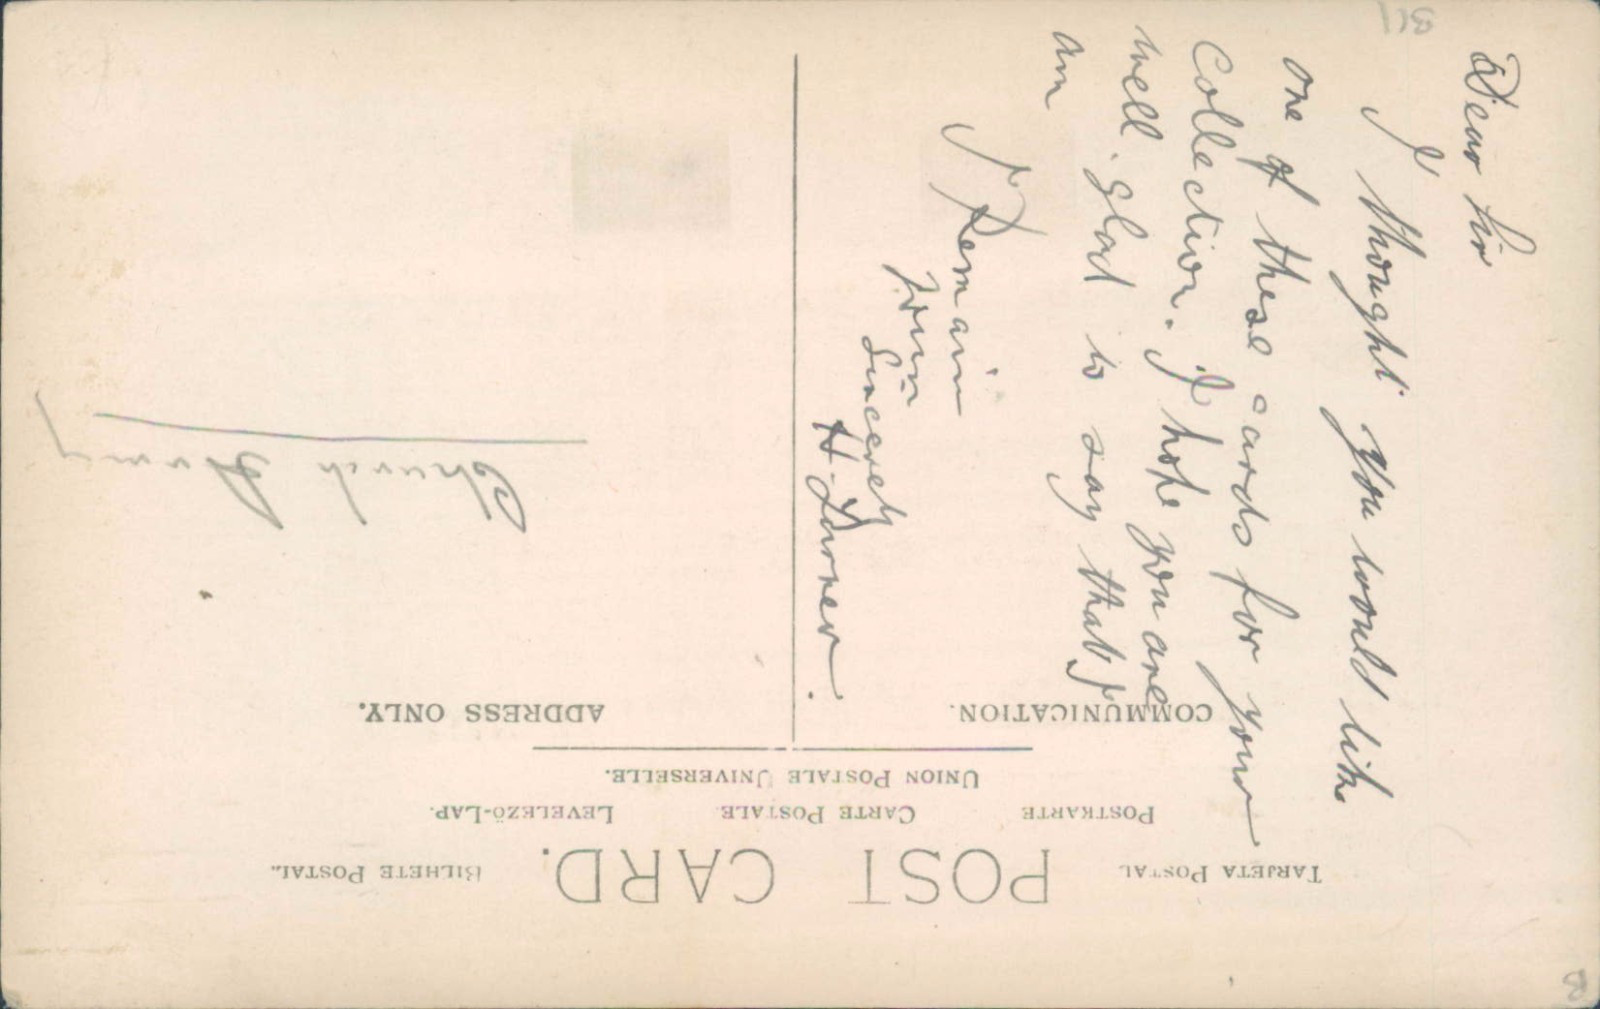 POST CARD.
TARJETA POSTAL
BILHETE POSTAL.
POSTKARTE
CARTE POSTALE
LEVELEZÖ-LAP.
UNION POSTALE UNIVERSELLE.
COMMUNICATION.
ADDRESS ONLY.
Dear Sir
I thought you would like
one of these cards for your
Collection. I hope you are
well. glad to say that I
am
I Remain
Yours
Sincerely
H. Turner.
Church Army